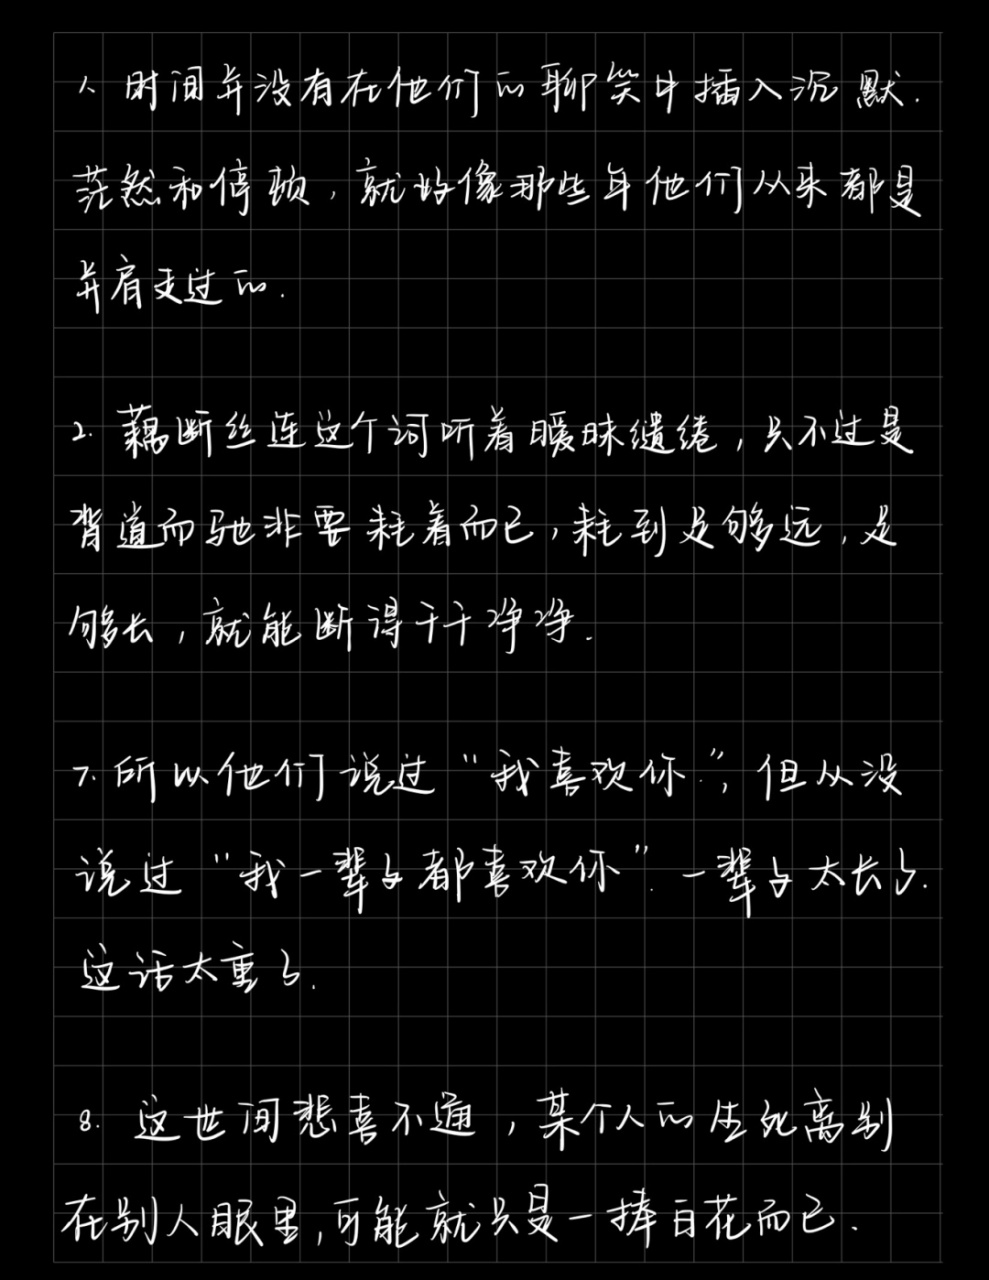 1. 时间并没有在他们的聊笑中插入沉默.
茫然和停顿，就好像那些年他们从来都是
并肩走过的.
2. 藕断丝连这个词听着暧昧缱绻，只不过是
背道而驰非要耗着而已，耗到足够远，足
够长，就能断得干干净净.
7. 所以他们说过“我喜欢你.”，但从没
说过“我一辈子都喜欢你”. 一辈子太长了.
这话太重了.
8. 这世间悲喜不通，某个人的生死离别
在别人眼里，可能就只是一捧白花而已.